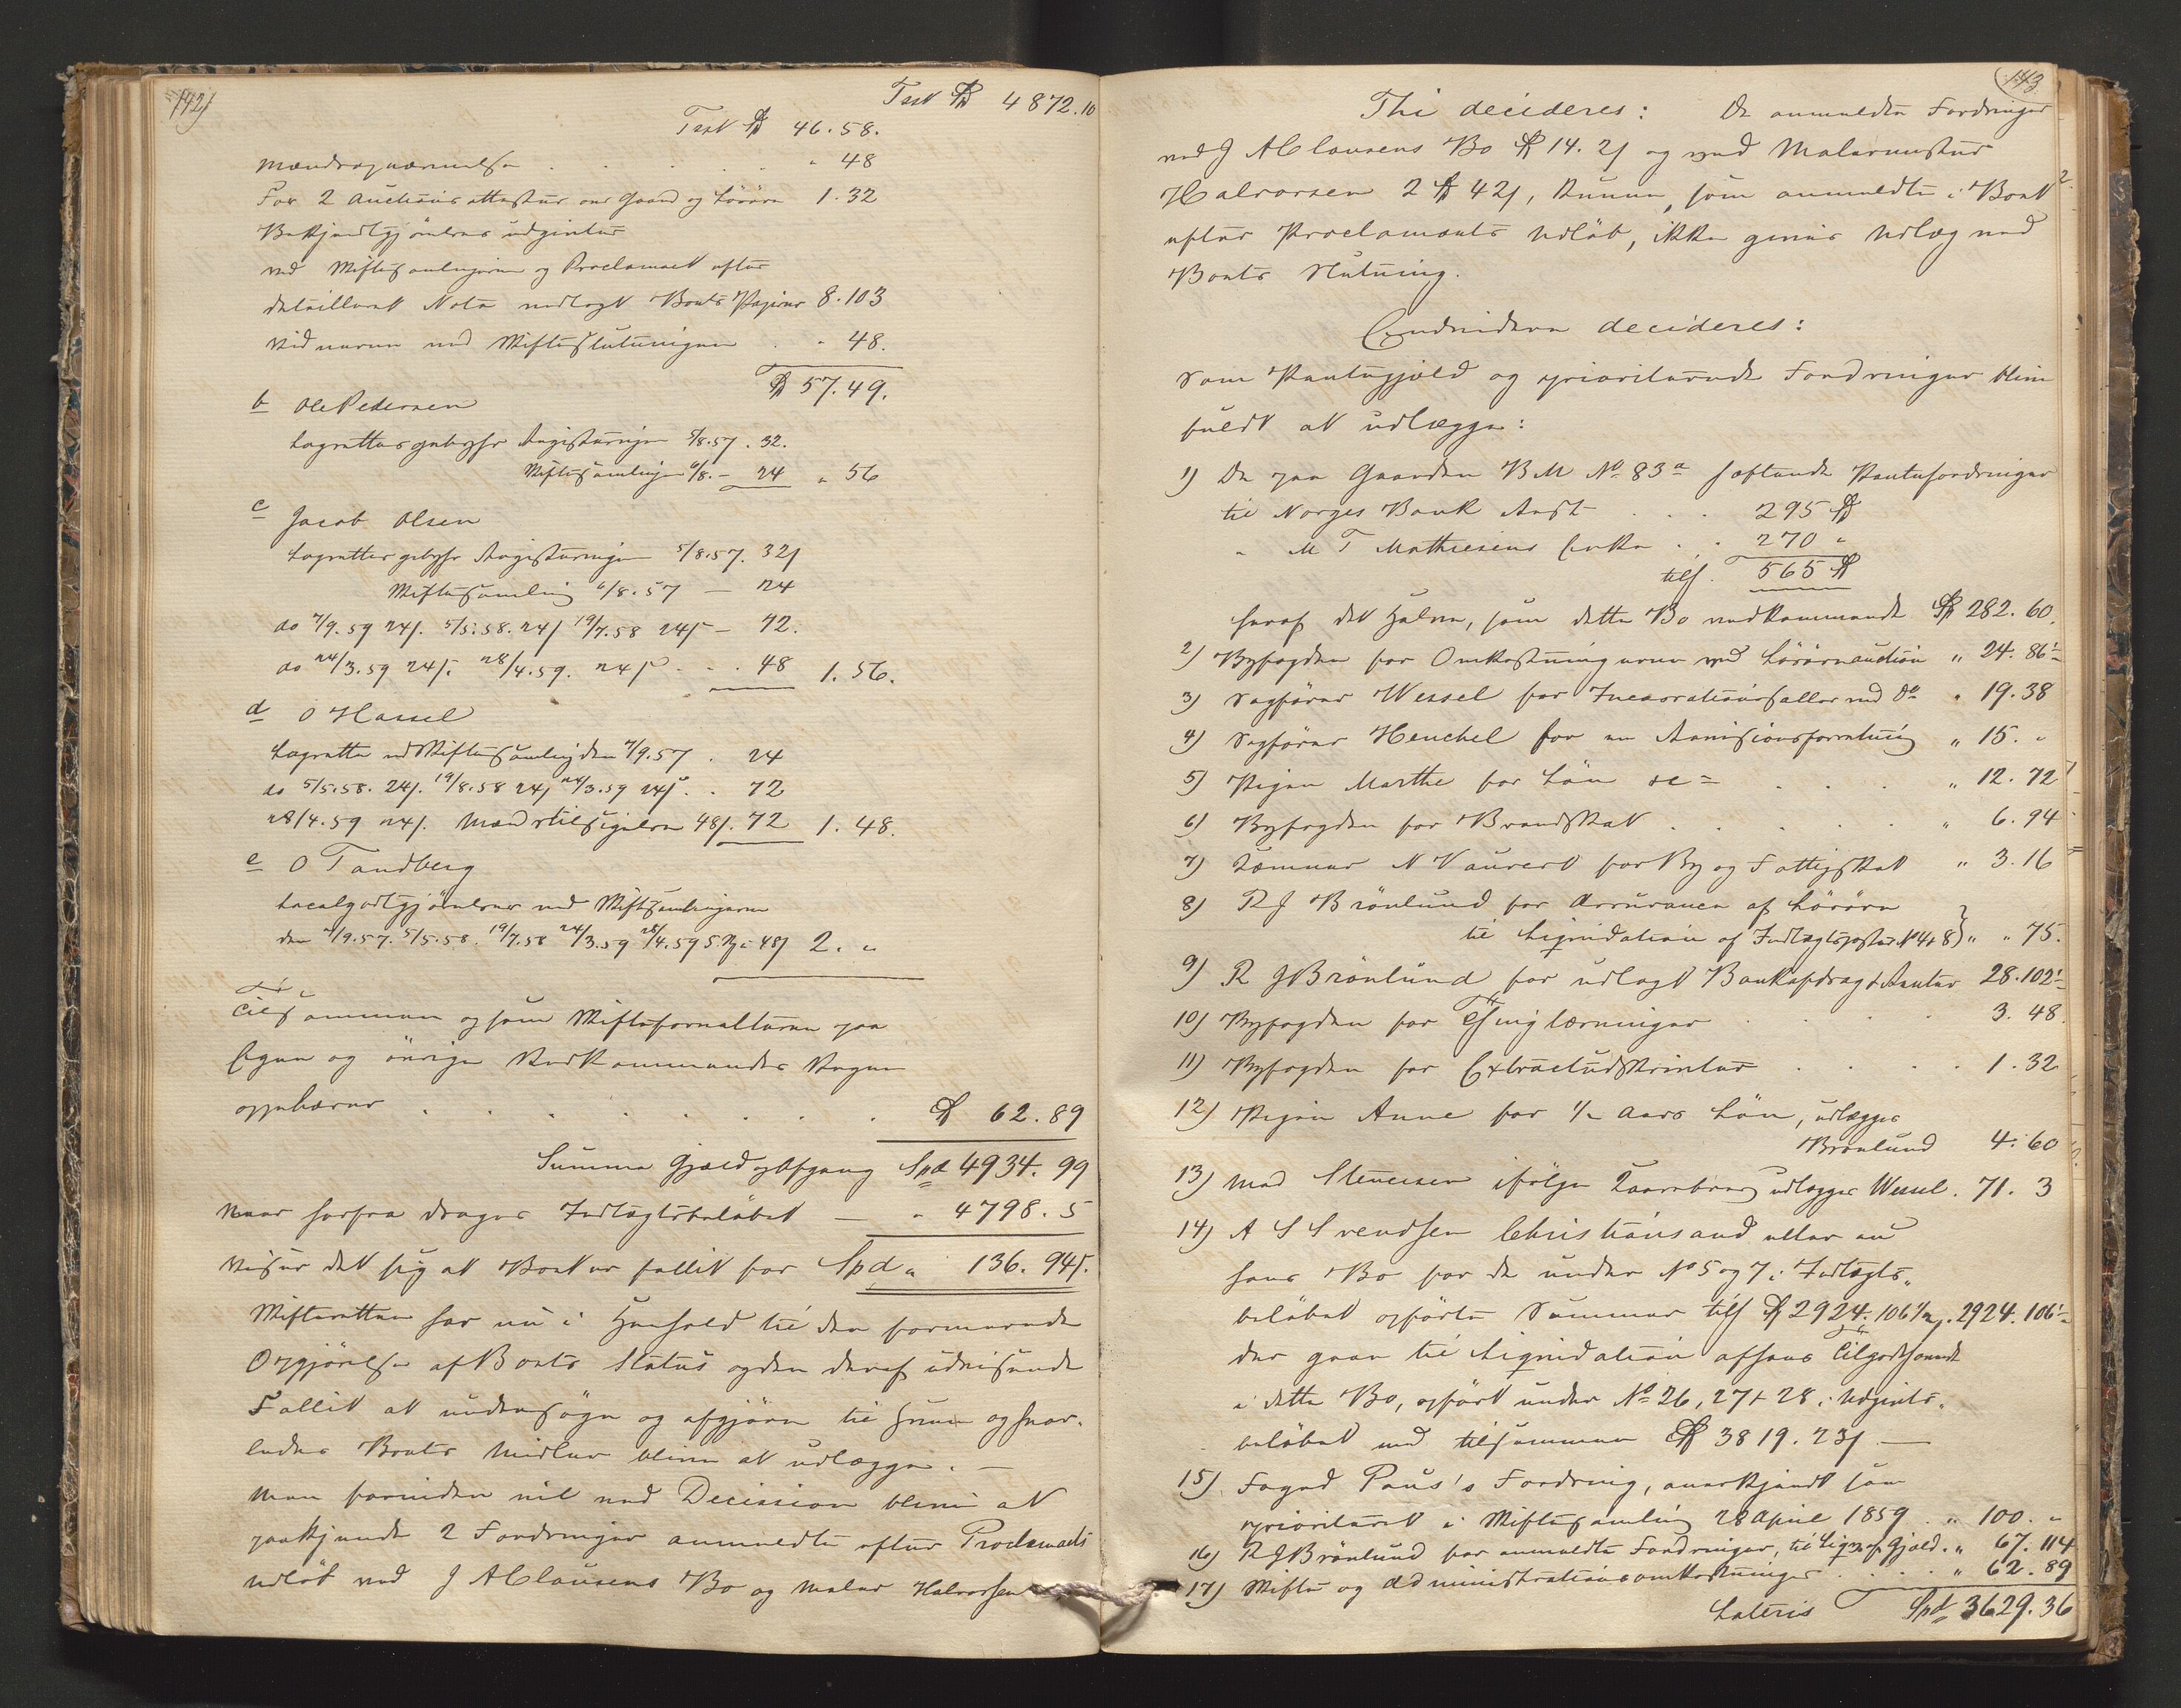 142)
Tsrt Spd 4872.10
Tsrt Spd 46.58.
Mændsopnævnelse . . . " 48
For 2 Auctionsattester over Gaard og Lösöre 1.32
Bekjendtgjörelses udgivter
ved Skiftesamlingerne og Proclamaet efter
detailleret Nota vedlagt Boets Papirer 8.103
Vidnerne ved Skifteslutningen . " 48.
Spd 57.49.
b Ole Pedersen
Lagrettes gebyhr Registeringen 5/8.57. 32.
Skiftesamlingen 6/8. — 24 " 56
c Jacob Olsen
Lagrettes gebyhr Registeringen 5/8.57. 32/
Skiftesamling 6/8.57 — 24
do 7/9.59 24/. 5/5.58. 24/ 19/7.58 24/ — 72.
do 24/3.59 24/. 28/4.59. 24/ . . 48 1.56.
d O Hassel
Lagrette ved Skiftesamling den 7/9.57 . 24
do 5/5.58. 24/. 19/8.58 24/ 24/3.59 24/. . 72
28/4.59 24/. Mænds tilsigelse 48/. 72 1.48.
e O Tandberg
Localgodtgjörelser ved Skiftesamlingerne
den 7/9.57. 5/5.58. 19/7.58 24/3.59 28/4.59 5. Ng a 48/ 2. "
Tilsammen og som Skifteforvalteren paa
Egne og övrige Vedkommendes Vegne
oppebærer . . . . . . Spd 62.89
Summa Gjæld og Afgang Spd 4934.99
Naar herfra drages Indtægtsbelöbet — " 4798.5
viser det sig at Boet er fallit for Spd " 136.94/.
Skifteretten har nu i Henhold til den foranværende
Opgjörelse af Boets Status og den deraf udvisende
Fallit at undersöge og afgjöre til hvem og hvor-
ledes Boets Midler blive at udlægge. —
Men forinden vil ved Decission blive at
paakjende 2 Fordringer anmeldte efter Proclamaets
Udlöb ved J A Clausens Bo og Maler Halvorsen
143.
Thi decideres: De anmeldte Fordringer
ved J A Clausens Bo Spd 14.2/ og ved Malermester
Halvorsen 2 Spd 42/, kunne, som anmeldte i Boet
efter Proclamaets Udlöb, ikke gives Udlæg ved
Boets Slutning.
Endvidere decideres:
Som Pantegjæld og prioriterede Fordringer blive
fuldt at udlægge:
1) De paa Gaarden B M No 83a heftende Pantefordringer
til Norges Bank Rest . . . 295 Spd
" M T Mathiesens Enke . . 270 "
tils. 565 Spd
heraf det Halve, som dette Bo vedkommende Spd 282.60.
2) Byfogden for Omkostningerne ved Lösöreauction " 24.86½
3) Sagförer Wessel for Incassationssallær ved do " 19.38
4) Sagförer Henchel for en Revisionsforretning " 15. "
5) Pigen Marthe for Lön &c = . . . " 12.72
6) Byfogden for Brandskat . . . . . " 6.94
7) Kæmner N Vauvert for By og Fattigskat " 3.16
8) R J Brönlund for Assurance af Lösöre
til Liqvidation af Indtægtsposter No 4 & 8) " " 75.
9) R J Brönlund for udlagt Bankafdrag & Renter 28.102½
10) Byfogden for Thinglæsninger . . . . 3.48
11) Byfogden for Extractudskrivter . . . . 1.32
12) Pigen Anne for ½ Aars Lön, udlægges
Brönlund 4.60
13) Mad Stenersen ifölge udlægges Wessel. 71.3
14) A S Svendsen Christiansand eller nu
hans Bo for de under No 5 og 7 i Indtægts-
belöbet opförte Summer tils Spd 2924.106½. 2924.106½
der gaar til Liqvidation af hans Tilgodehavende
i dette Bo, opfört under No 26, 27 & 28 i Udgivts-
belöbet med tilsammen Spd 3819.23/. —
15) Foged Paus's Fordring, anerkjendt som
prioriteret i Skiftesamling 28 April 1859 . " 100. "
16) R J Brönlund for anmeldte Fordringer, til Liqv. af Gjæld. " 67.114
17) Skifte og Administrationsomkostninger . . . . " 62.89
Lateris Spd 3629.36